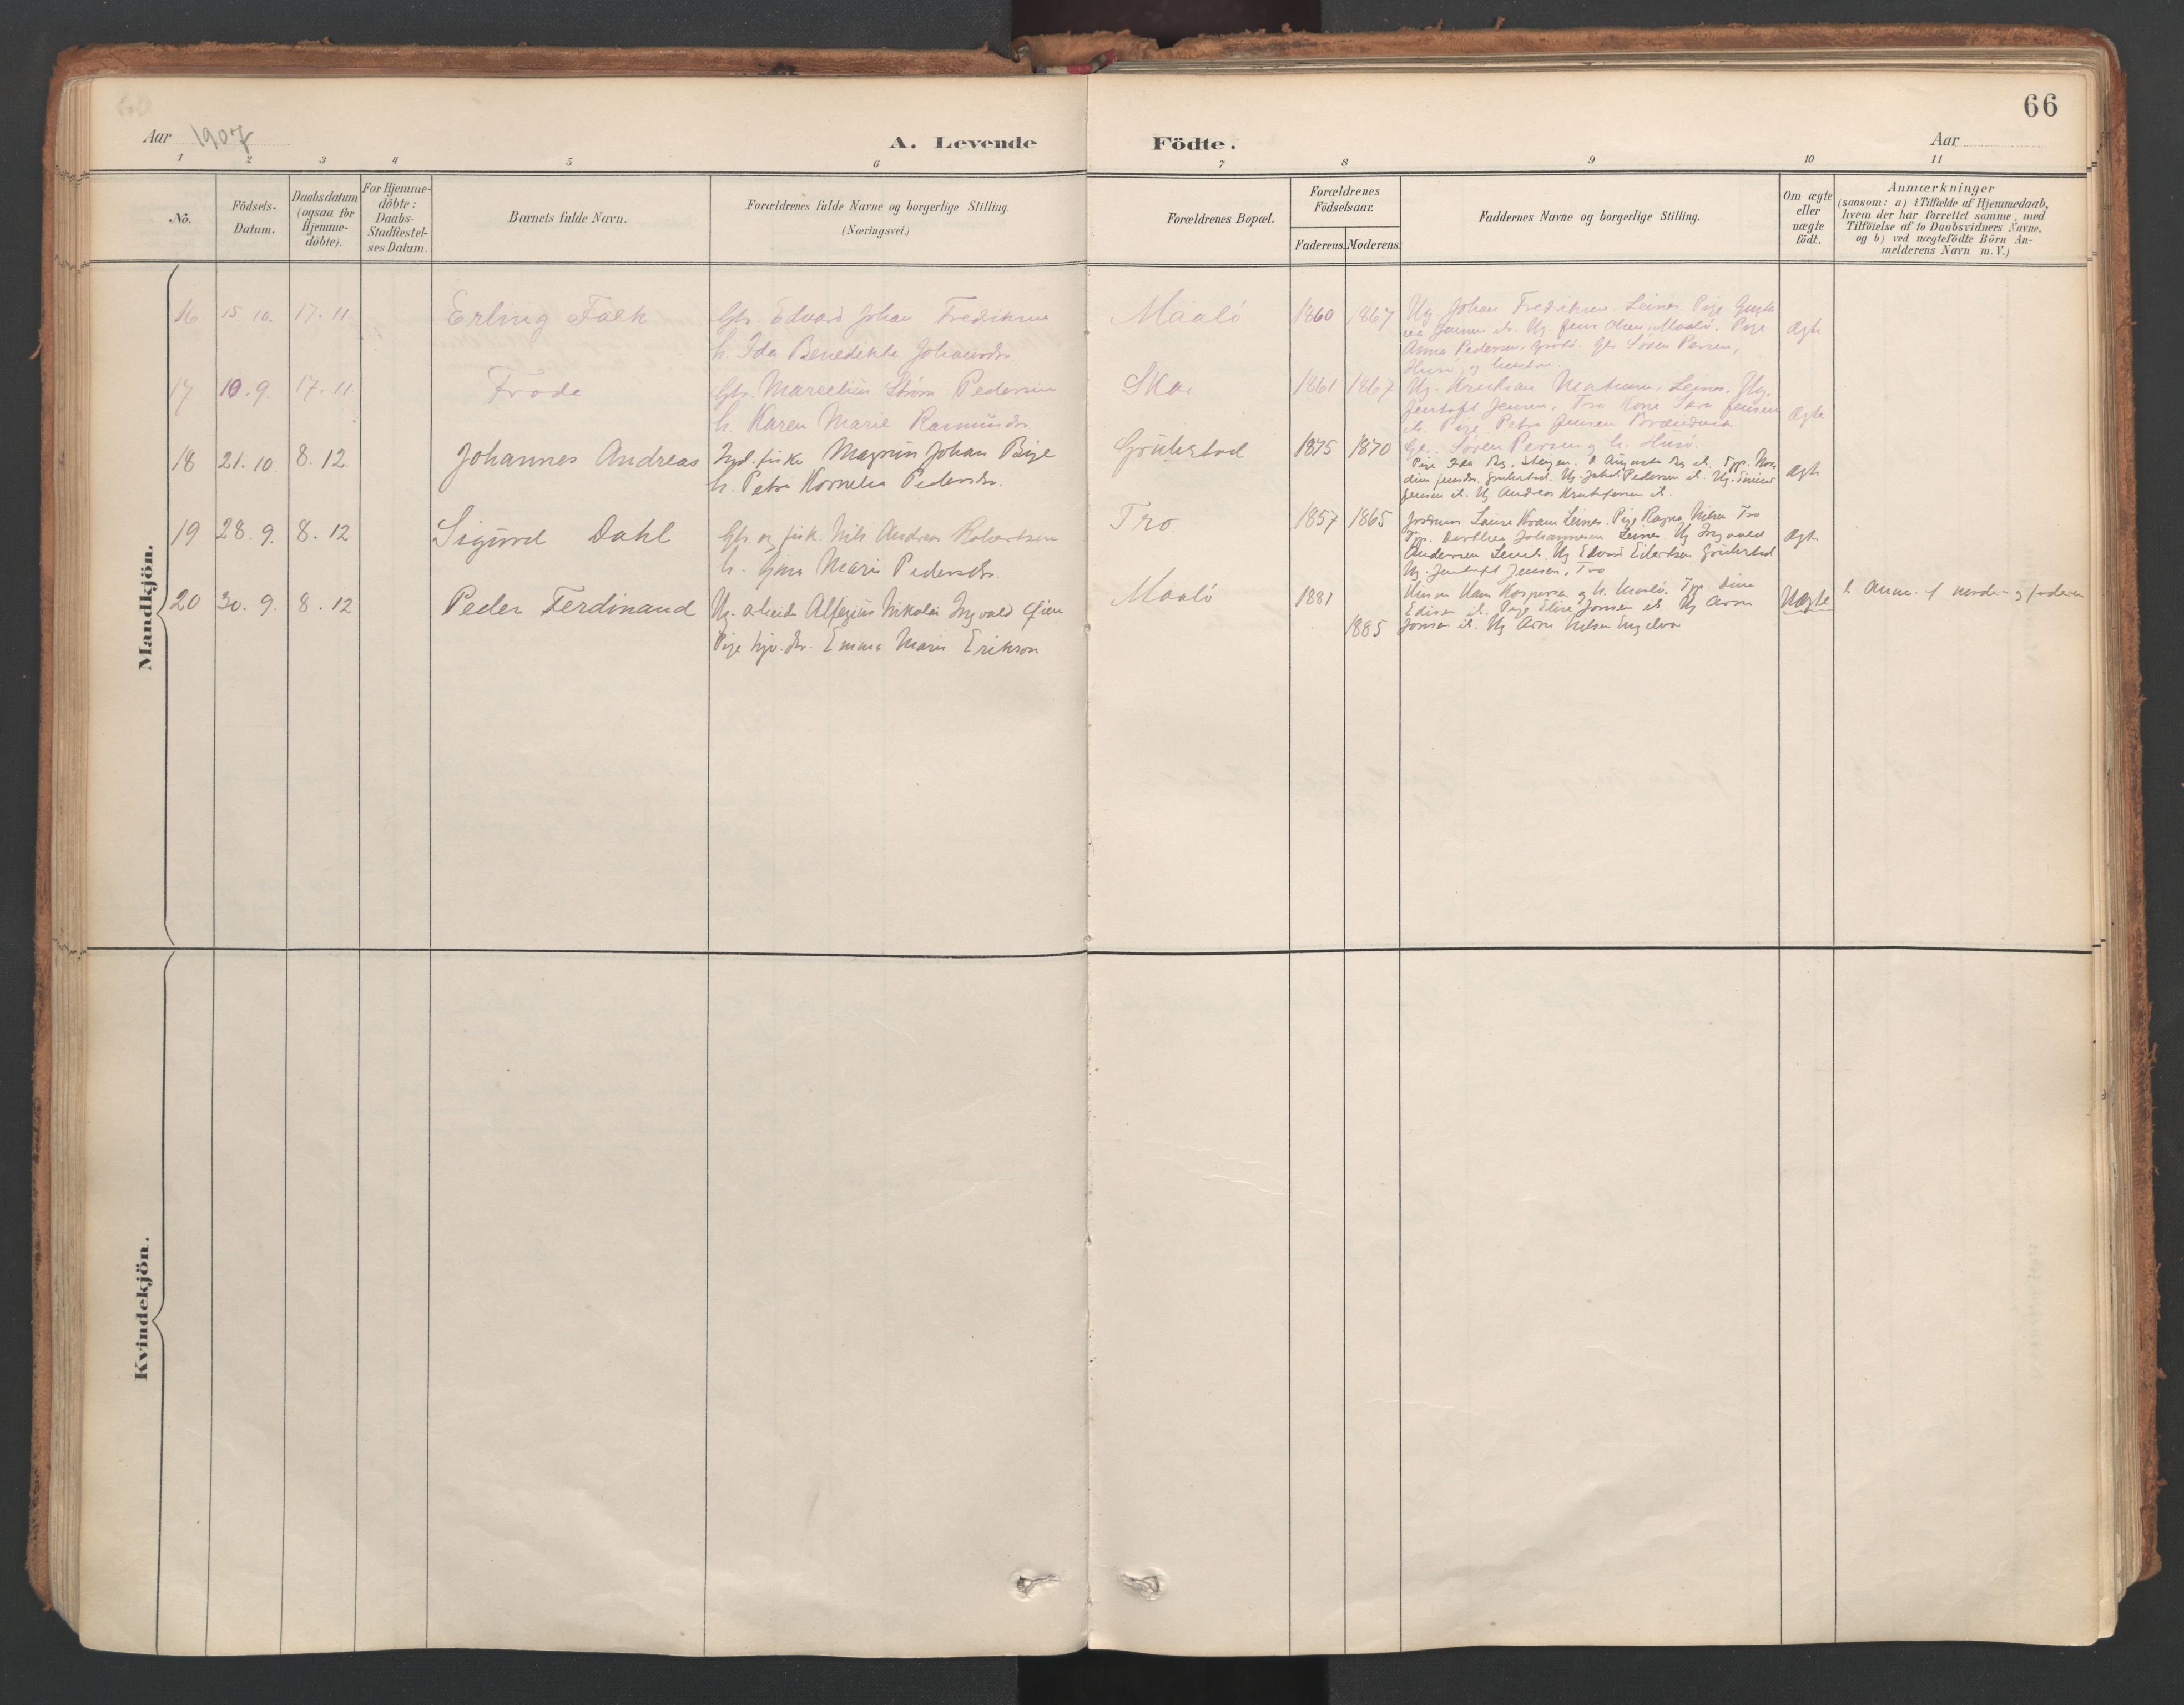 66
Aar 1907
A. Levende Födte.
Aar
1 2 3 4 5 6 7 8 9 10 11
No.
Födsels-
Datum.
Daabsdatum
(ogsaa for
Hjemme-
döbte).
For Hjemme-
döbte:
Daabs-
Stadfæstel-
ses Datum.
Barnets fulde Navn.
Forældrenes fulde Navne og borgerlige Stilling.
(Næringsvei.)
Forældrenes Bopæl.
Forældrenes
Födselsaar.
Faderens. Moderens.
Faddernes Navne og borgerlige Stilling.
Om ægte
eller
uægte
födt.
Anmærkninger
(saasom: a) i Tilfælde af Hjemmedaab,
hvem der har forrettet samme, med
Tilföielse af to Daabsvidners Navne,
og b) ved uægtefödte Börn An-
melderens Navn m. V.)
Mandkjön.
16 15 10. 17. 11. Erling Falk
Gbr. Edvard Johan Fredriksen
h. Ida Benedikte Johansdr.
Maalö 1860 1867
Ug Johan Fredriksen, Leines. Pige
Jensen il. Ug. Jens Olsen, Maalö. Pige
Anna Pedersen, Grötö. Gbr Sören Persen,
Husö, og
Ægte
17 10. 9. 17. 11. Frode
Gbr. Marcelius Storm Pedersen
h. Karen Marie Rasmusdr.
Ska 1861 1867
Ug. Kristian Leines. Ug.
Jentoft Jensen, Tro Kone Sara Jensen
il. Pige Petra Jensen
Gbr. Sören Persen og h. Husö.
Ægte
18 21. 10. 8. 12 Johannes Andreas
Inds. fisker Magnus Johan Bye
h. Petra Kornelia Pedersdr.
1875 1870
Pige Ida Steigen. Augusta il.
Jensdr. Ug. Jakob Pedersen il. Ug.
Jensen il. Ug Andreas Kristofersen il.
Ægte
19 28. 9. 8. 12 Sigurd Dahl
Gbr og fisk. Nils Andreas Robertsen
h. Gina Marie Pedersdr.
Tro 1857 1865
Laura Kvam Leines. Pige Ragna Nilsen Tro
Dorthea Johannesen Leines. Ug Ingvald
Andersen Leines. Ug Edvard Eilertsen
Ug. Jentoft Jensen, Tro
Ægte
20 30. 9. 8. 12 Peder Ferdinand
Ug. arbeider Nikolai Ingvald
Pige hjv. dr. Emma Marie Erikson
Maalö 1881
1885
Hans Kaspersen og h. Maalö. Dina
Edisen il. Pige Eline Jonsen il. Ug Aron
Jonsen il. Ug Arne Nilsen Engelvær
Uægte
Anm. af moder og faderen
Kvindekjön.